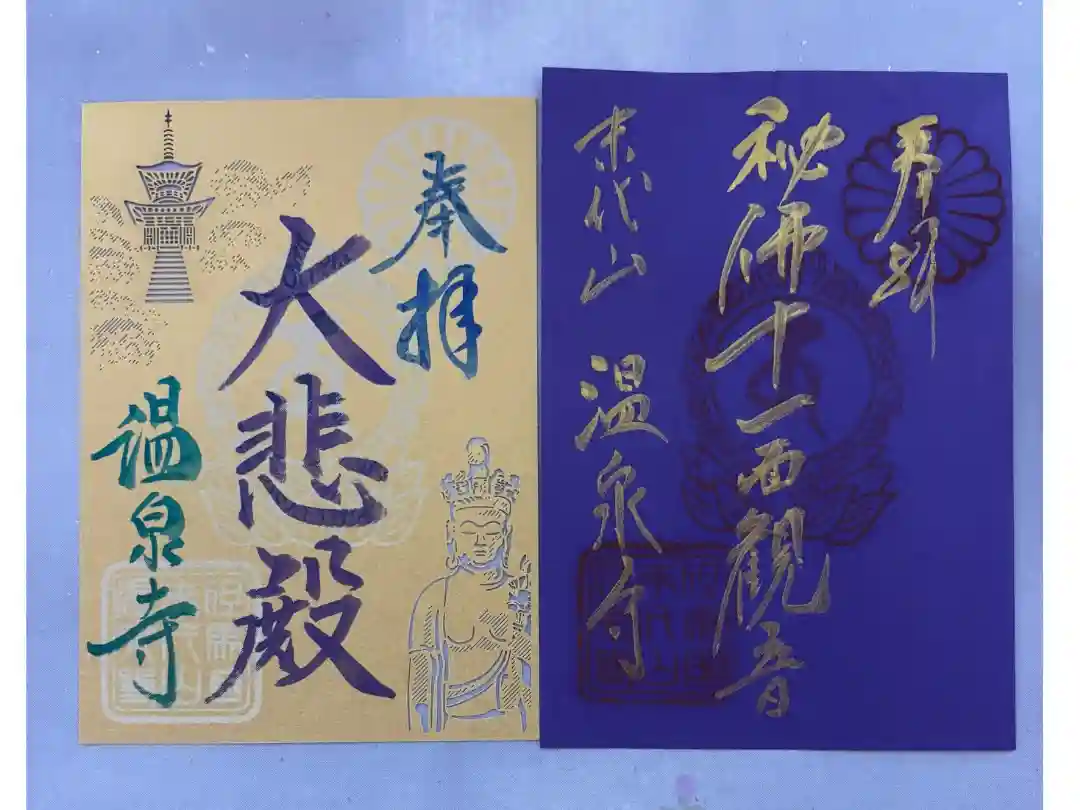 奉拝
大悲殿
温泉寺
奉拝
秘佛十一面観音
末代山 温泉寺